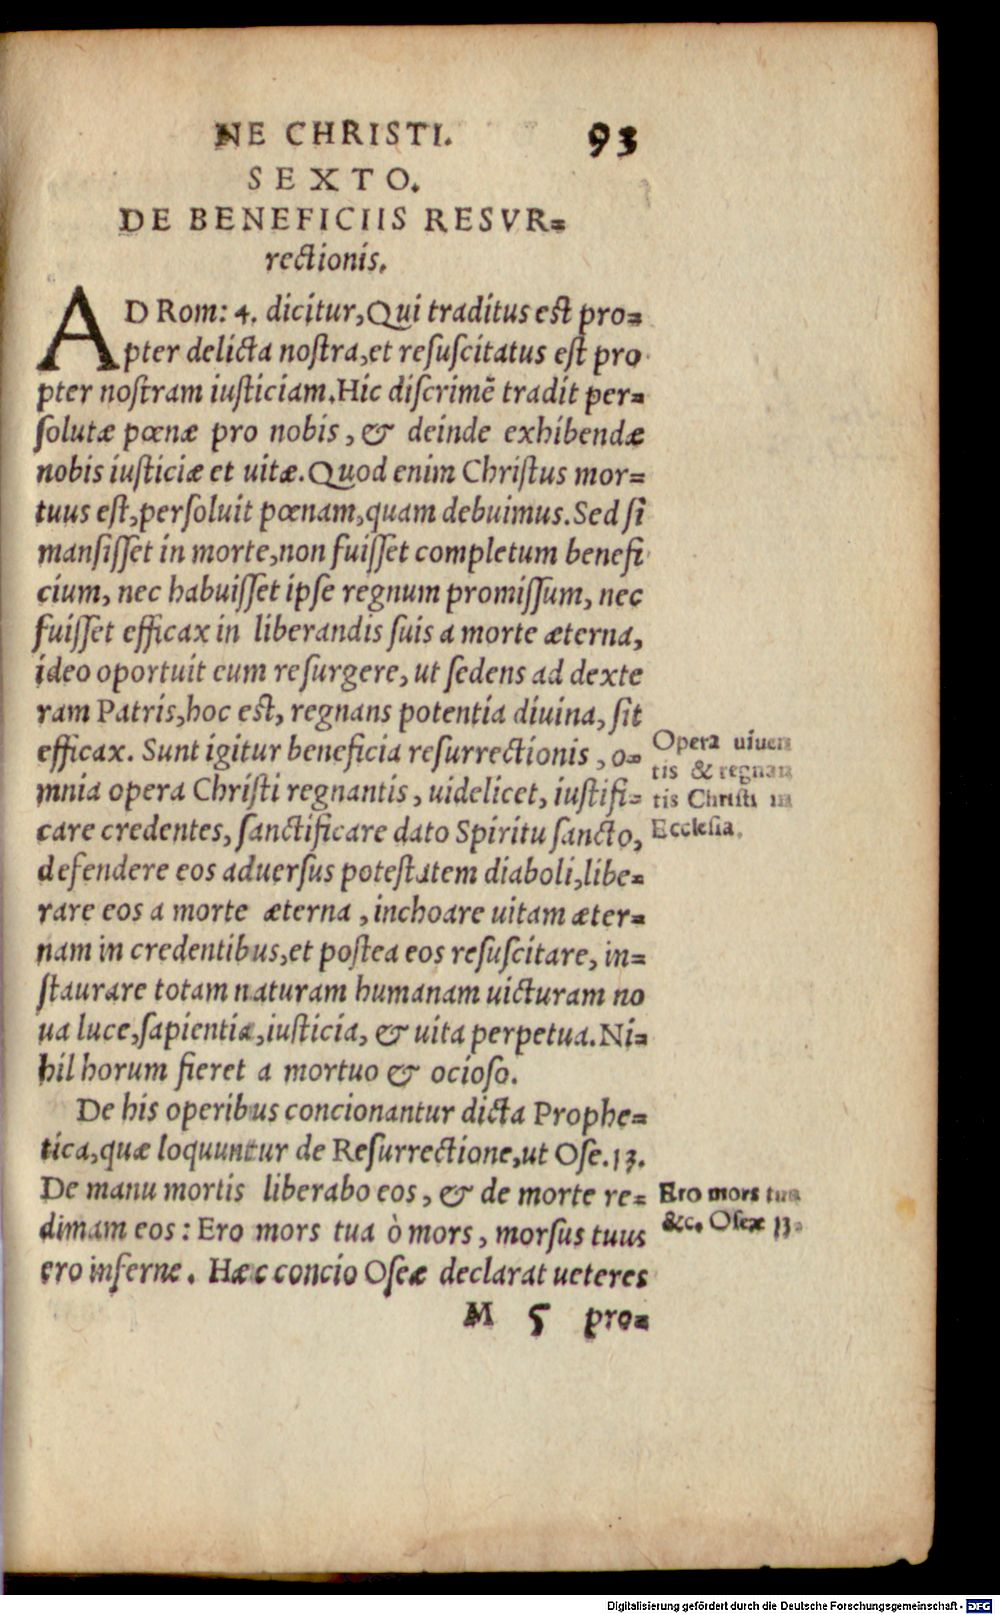 NE CHRISTI. 93
SEXTO.
DE BENEFICIIS RESVR=
rectionis.
AD Rom: 4. dicitur, Qui traditus est pro=
pter delicta nostra, et resuscitatus est pro
pter nostram iusticiam. Hic discrimē tradit per=
solutæ pœnæ pro nobis, & deinde exhibendæ
nobis iusticiæ et uitæ. Quod enim Christus mor=
tuus est, persoluit pœnam, quam debuimus. Sed si
mansisset in morte, non fuisset completum benefi
cium, nec habuisset ipse regnum promissum, nec
fuisset efficax in liberandis suis a morte æterna,
ideo oportuit eum resurgere, ut sedens ad dexte
ram Patris, hoc est, regnans potentia diuina, sit
efficax. Sunt igitur beneficia resurrectionis, o=
mnia opera Christi regnantis, uidelicet, iustifi=
care credentes, sanctificare dato Spiritu sancto,
defendere eos aduersus potestatem diaboli, libe=
rare eos a morte æterna, inchoare uitam æter=
nam in credentibus, et postea eos resuscitare, in=
staurare totam naturam humanam uicturam no
ua luce, sapientia, iusticia, & uita perpetua. Ni=
hil horum fieret a mortuo & ocioso.
De his operibus concionantur dicta Prophe=
tica, quæ loquuntur de Resurrectione, ut Ose. 13.
De manu mortis liberabo eos, & de morte re=
dimam eos: Ero mors tua ò mors, morsus tuus
ero inferne. Hæc concio Oseæ declarat ueteres
M 5 pro=
Opera uiuen
tis & regnan
tis Christi in
Ecclesia.
Ero mors tua
&c. Oseæ 13.
Digitalisierung gefördert durch die Deutsche Forschungsgemeinschaft - DFG